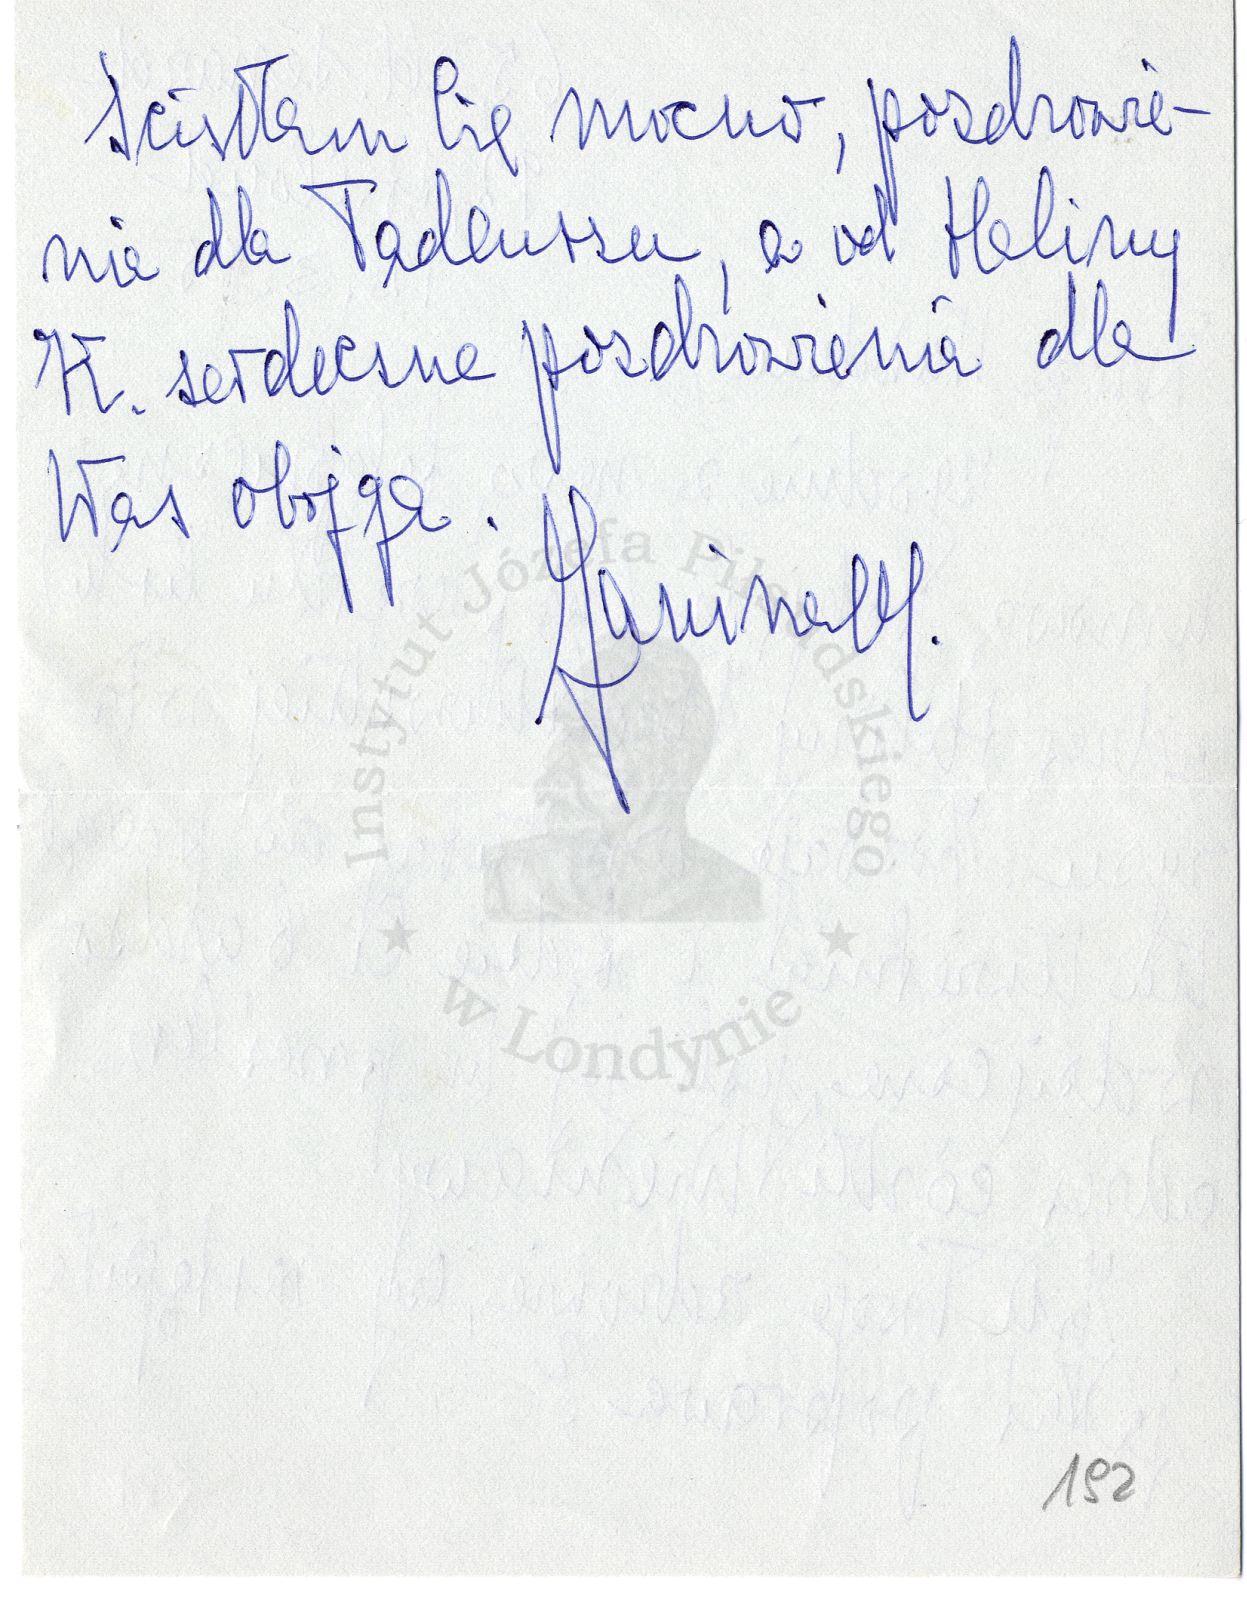 Ściskam Cię mocno, pozdrowie-
nia dla Tadeusza, a od Haliny
K. serdeczne pozdrowienia dla
Was obojga.
Janina M.
Instytut Józefa Piłsudskiego
w Londynie
192